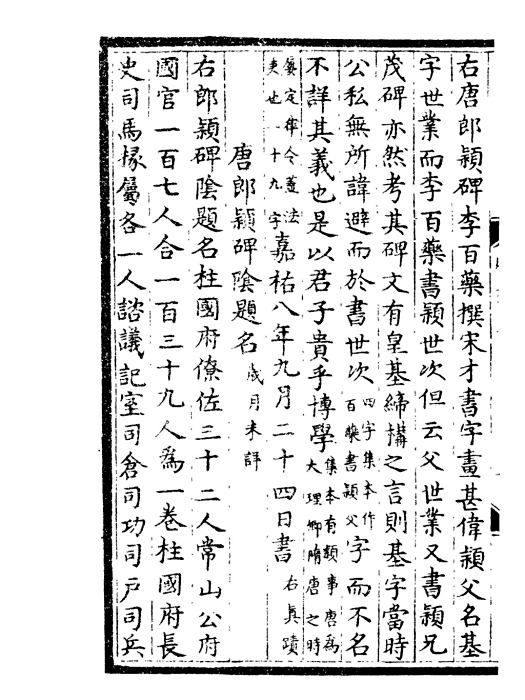 右唐郎穎碑李百藥撰宋才書字畫甚偉穎父名基
字世業而李百藥書穎世次但云父世業又書穎兄
茂碑亦然考其碑文有皇基締構之言則基字當時
公私無所諱避而於書世次四字集本作百藥書穎父字而不名
不詳其義也是以君子貴乎博學集本有穎事唐為大理卿隋唐之時
屢定律令蓋法吏也一十九字嘉祐八年九月二十四日書右真蹟
唐郎穎碑陰題名歲月未詳
右郎穎碑陰題名柱國府僚佐三十二人常山公府
國官一百七人合一百三十九人為一卷柱國府長
史司馬掾屬各一人諮議記室司倉司功司戶司兵